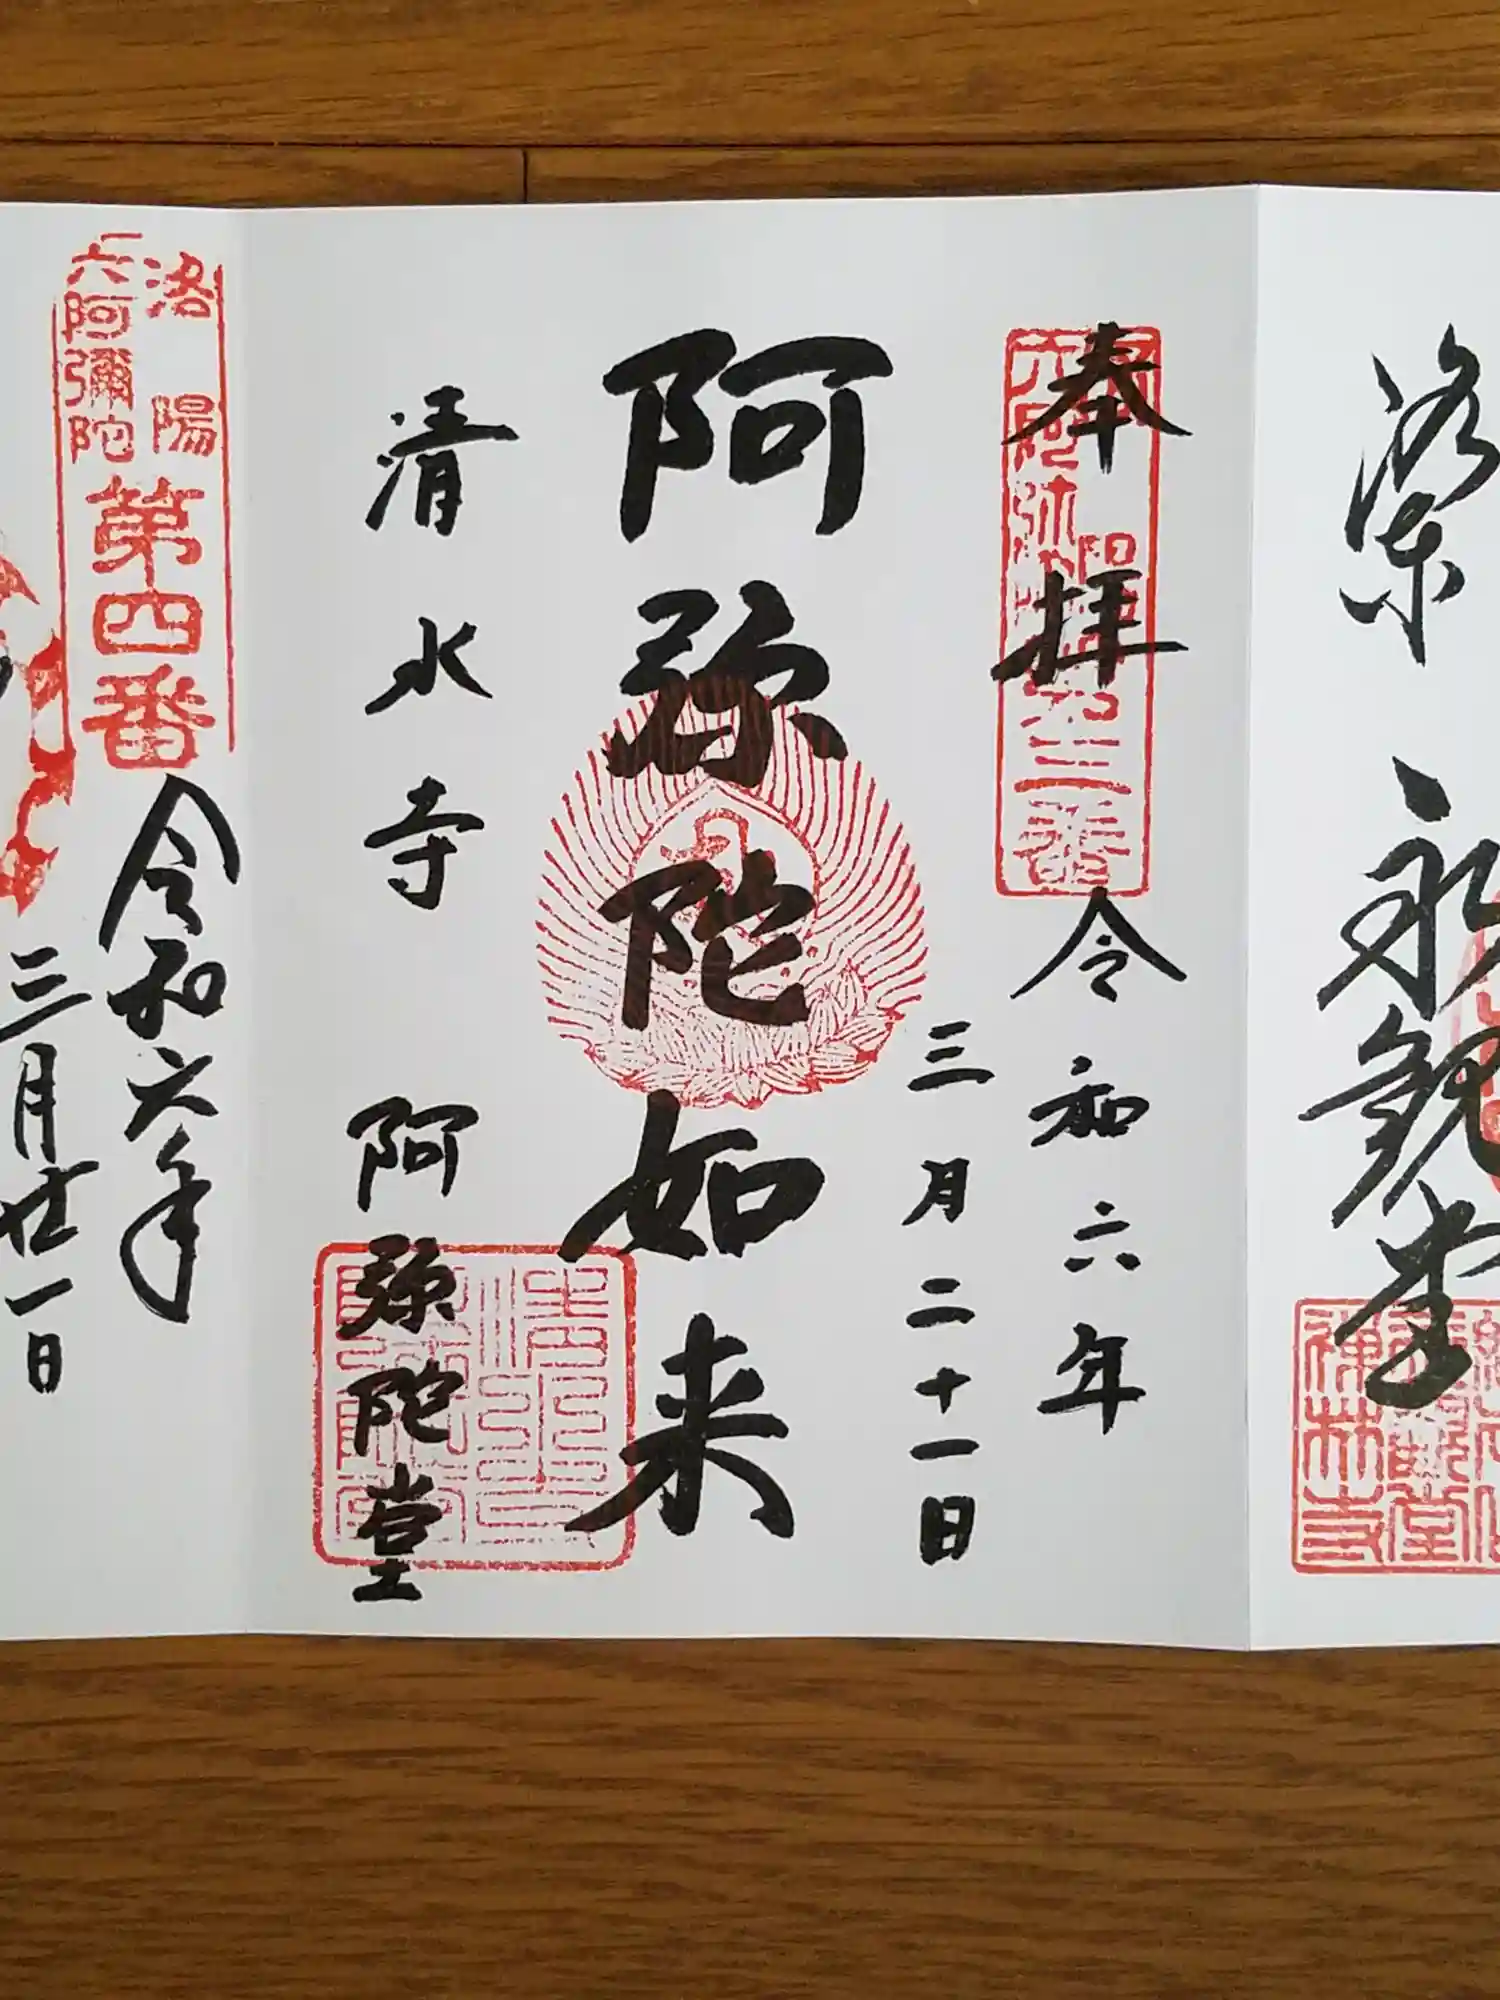 洛東
永観堂
禅林寺
奉拝
六阿弥陀第三番
令和六年
三月二十一日
阿弥陀如来
清水寺 阿弥陀堂
洛陽
六阿彌陀
第四番
令和六年
三月廿一日